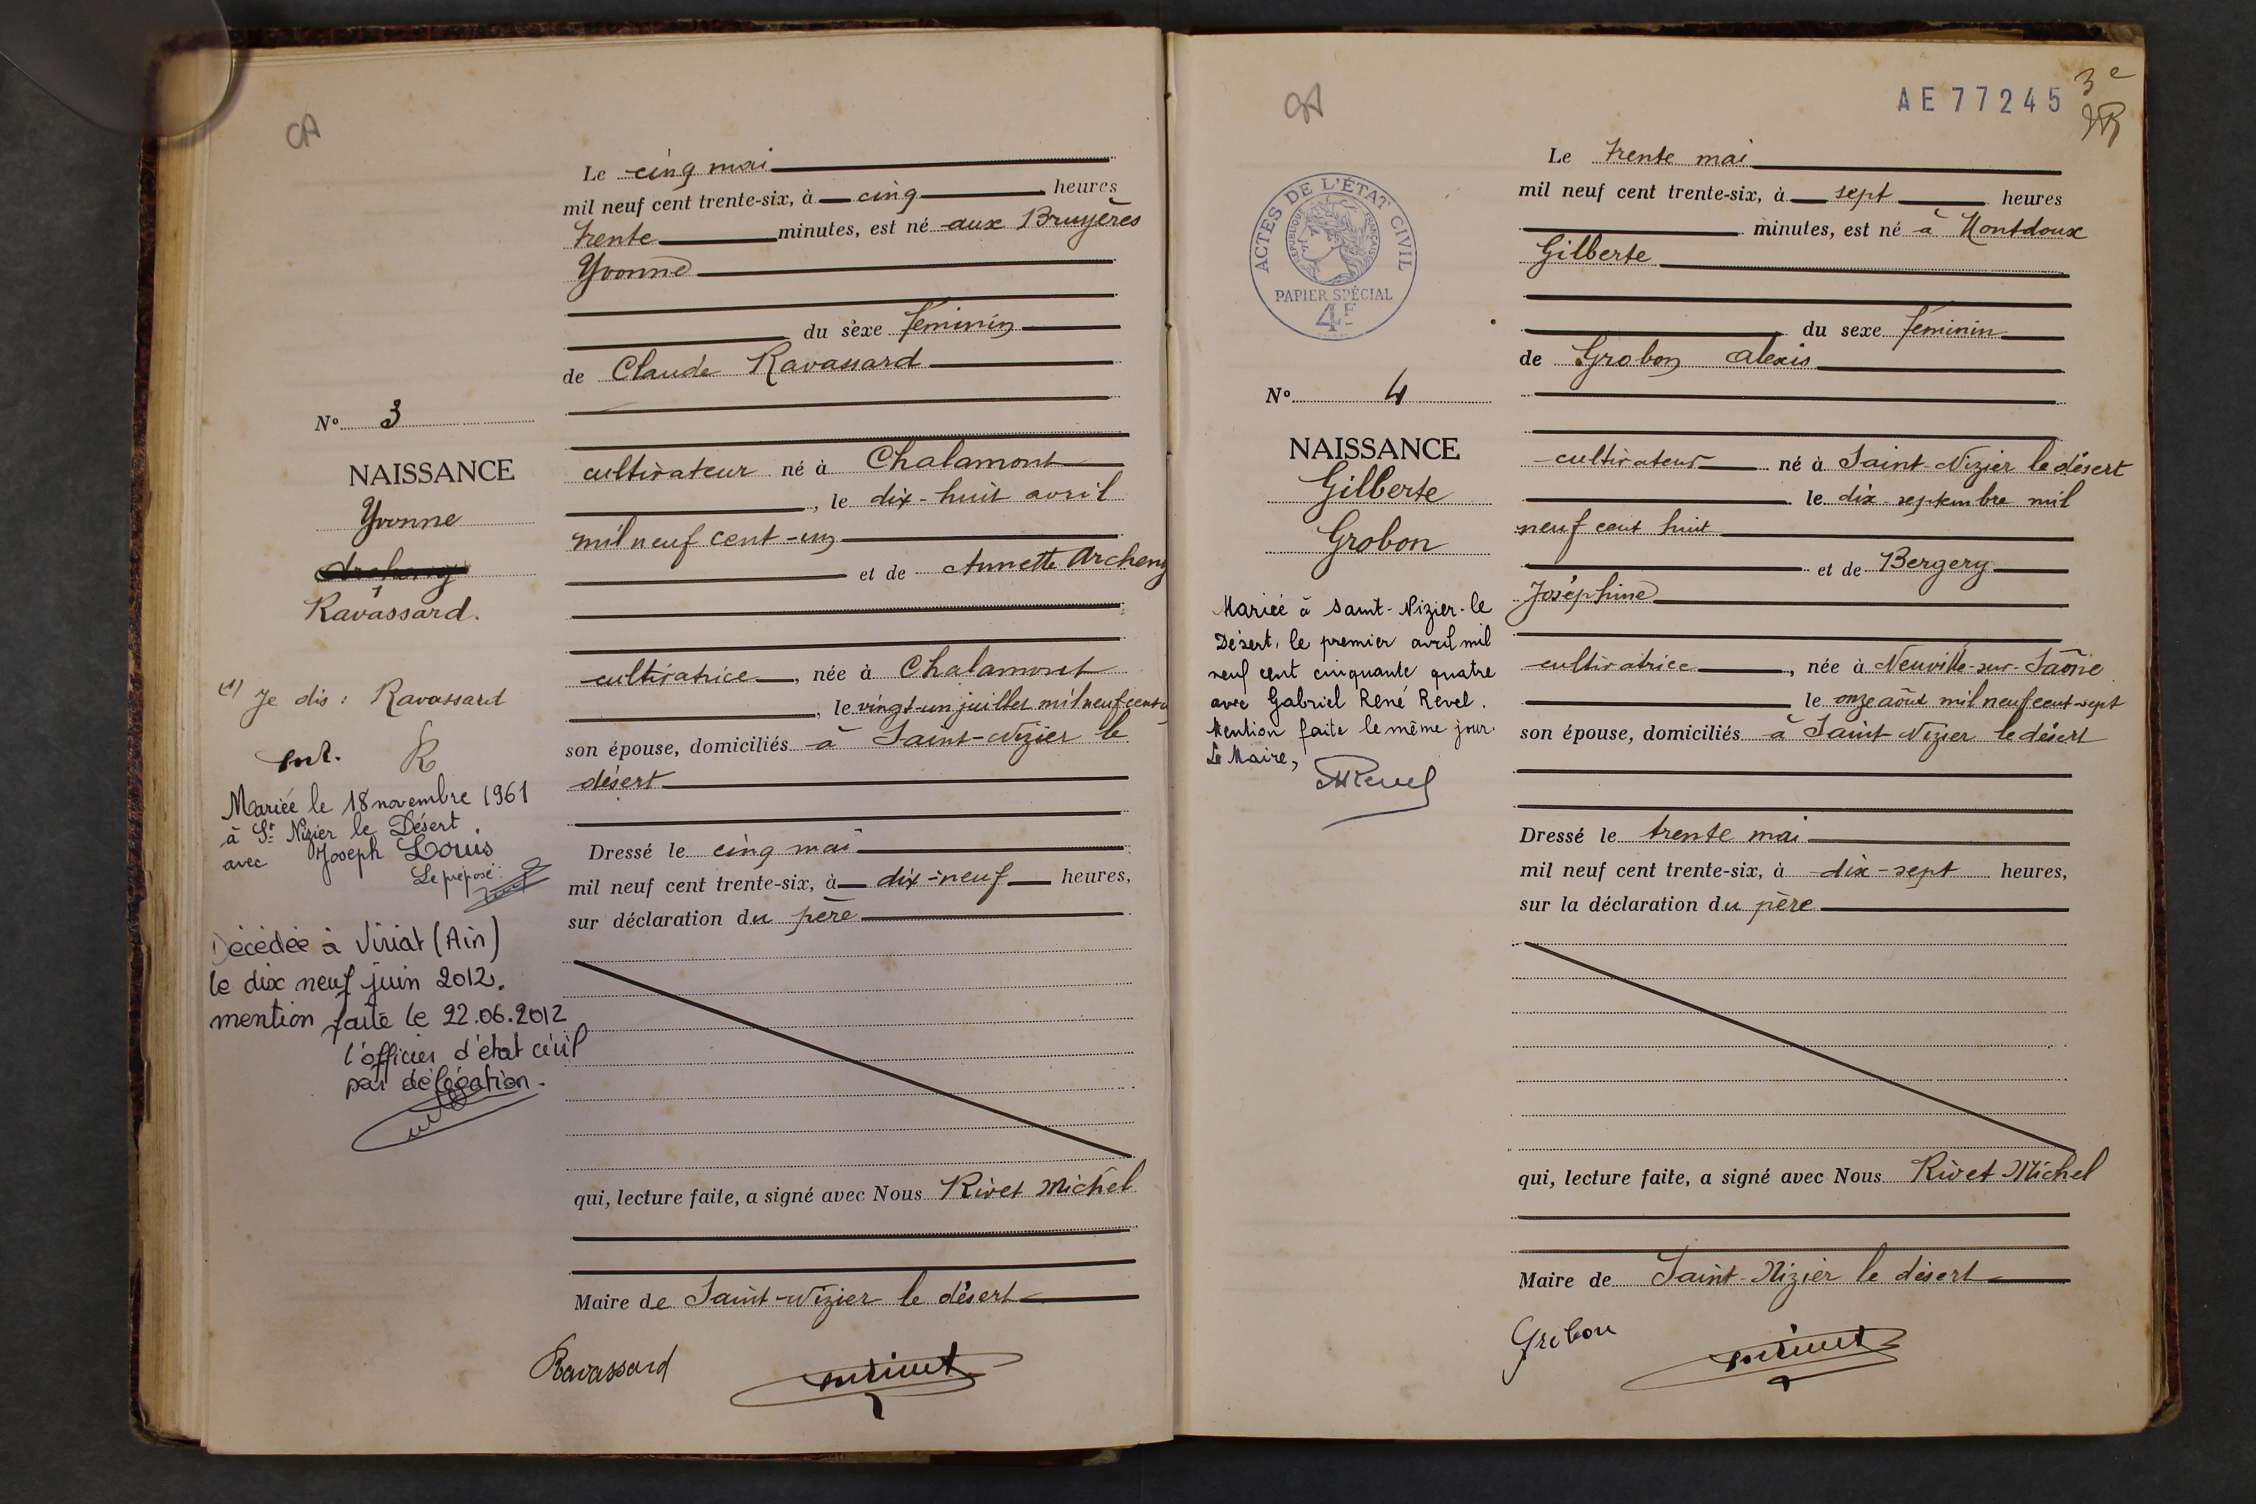 CA
Le cinq mai
mil neuf cent trente-six, à cinq heures
trente minutes, est né aux Bruyères
Yvonne
du sèxe féminin
de Claude Ravassard
No 3
NAISSANCE
Yvonne
Ravassard.
cultivateur né à Chalamont
, le dix-huit avril
mil neuf cent-un
et de Annette Archeny
cultivatrice, née à Chalamont
, le vingt-un juillet mil neuf cent
son épouse, domiciliés à Saint-Nizier le
désert
(1) Je dis : Ravassard
R
Mariée le 18 novembre 1961
à St Nizier le Désert
avec Joseph Louis
Le préposé :
Dressé le cinq mai
mil neuf cent trente-six, à dix-neuf heures,
sur déclaration du père
Décédée à Viriat (Ain)
le dix neuf juin 2012.
mention faite le 22.06.2012
l'officier d'état civil
par délégation.
qui, lecture faite, a signé avec Nous Rivet Michel
Maire de Saint-Nizier le désert
Ravassard
AE77245
3e
ACTES DE L'ÉTAT CIVIL
RÉPUBLIQUE FRANÇAISE
PAPIER SPÉCIAL
4F
Le trente mai
mil neuf cent trente-six, à sept heures
minutes, est né à Montdoux
Gilberte
du sexe féminin
de Grobon Alexis
No 4
NAISSANCE
Gilberte
Grobon
cultivateur né à Saint-Nizier le désert
le dix septembre mil
neuf cent huit
et de Bergery
Joséphine
cultivatrice, née à Neuville-sur-Saône
le onze août mil neuf cent-sept
son épouse, domiciliés à Saint-Nizier le désert
Mariée à Saint-Nizier-le
Désert, le premier avril mil
neuf cent cinquante quatre
avec Gabriel René Revel.
Mention faite le même jour.
Le Maire,
MRevel
Dressé le trente mai
mil neuf cent trente-six, à dix-sept heures,
sur la déclaration du père
qui, lecture faite, a signé avec Nous Rivet Michel
Maire de Saint-Nizier le désert
Grobon